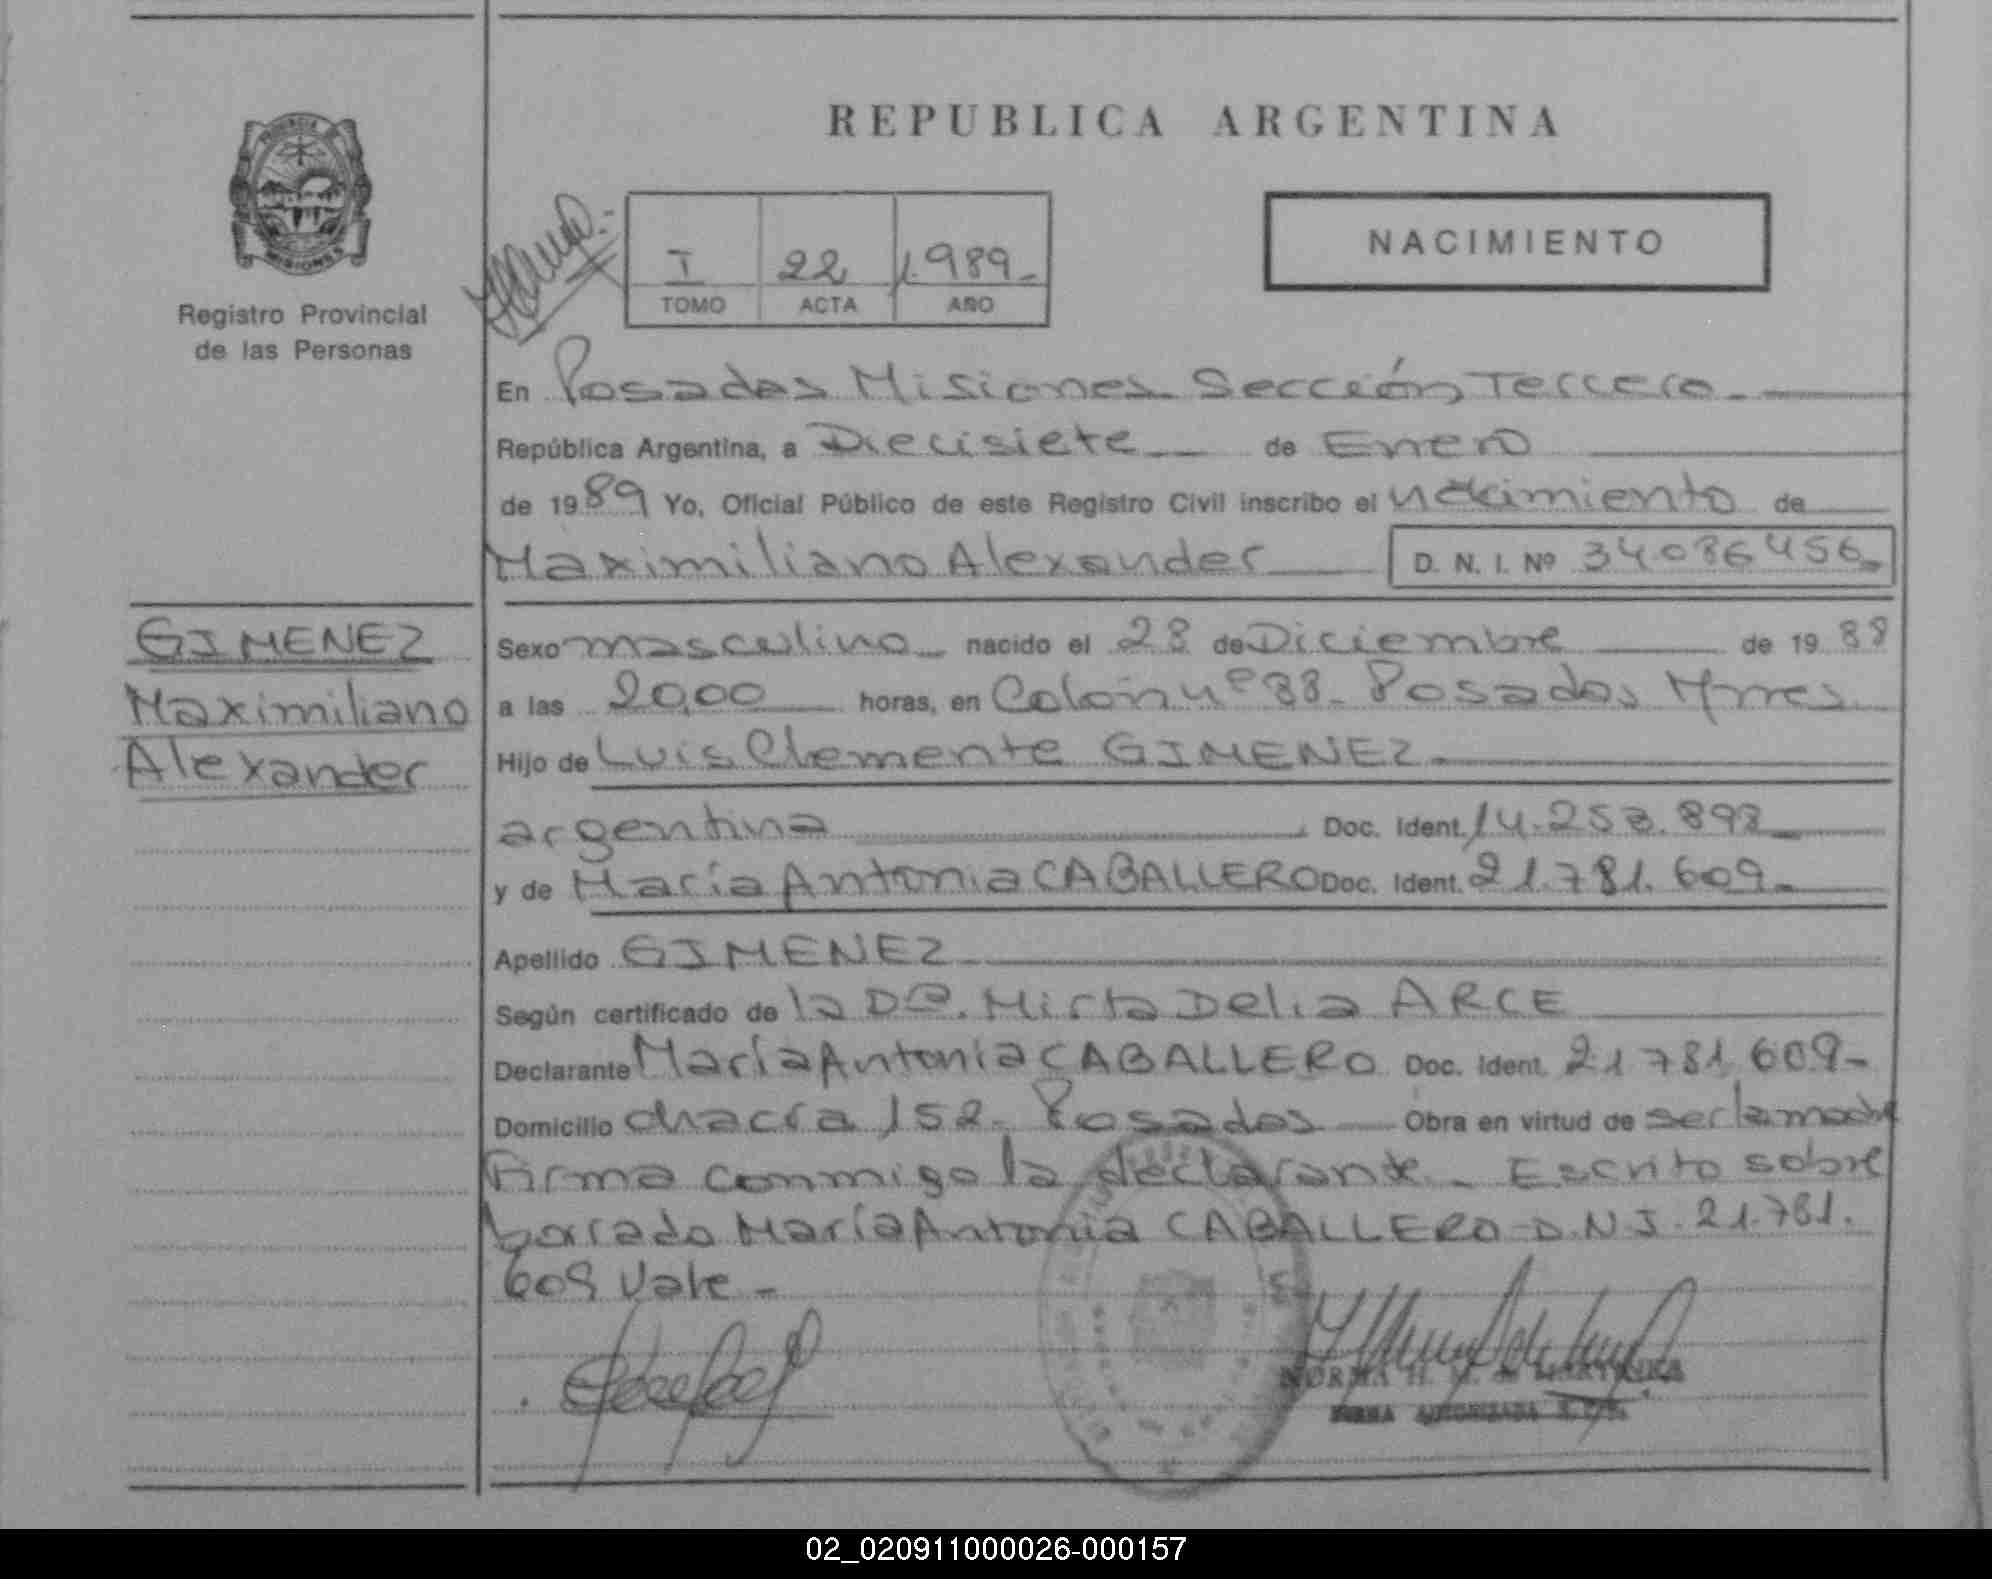 REPUBLICA ARGENTINA
PROVINCIA DE MISIONES
Registro Provincial
de las Personas
I 22 1.989-
TOMO ACTA AÑO
NACIMIENTO
En Posadas Misiones Sección Tercera.
República Argentina, a Diecisiete de Enero
de 1989 Yo, Oficial Público de este Registro Civil inscribo el nacimiento de
Maximiliano Alexander D. N. I. Nº 34086456-
GIMENEZ
Maximiliano
Alexander
Sexo masculino nacido el 28 de Diciembre de 1988
a las 20,00 horas, en Colón nº 88. Posadas Mnes.
Hijo de Luis Clemente GIMENEZ.
argentina Doc. Ident. 14.253.898
y de María Antonia CABALLERO Doc. Ident. 21.781.609-
Apellido GIMENEZ
Según certificado de la Dra. Mirta Delia ARCE
Declarante María Antonia CABALLERO Doc. Ident. 21781609-
Domicilio chacra 152. Posadas Obra en virtud de
Firma conmigo la declarante. Escrito sobre
borrado María Antonia CABALLERO D.N.I. 21.781.
609 Vale -
NORMA H.
FIRMA AUTORIZADA
02_020911000026-000157